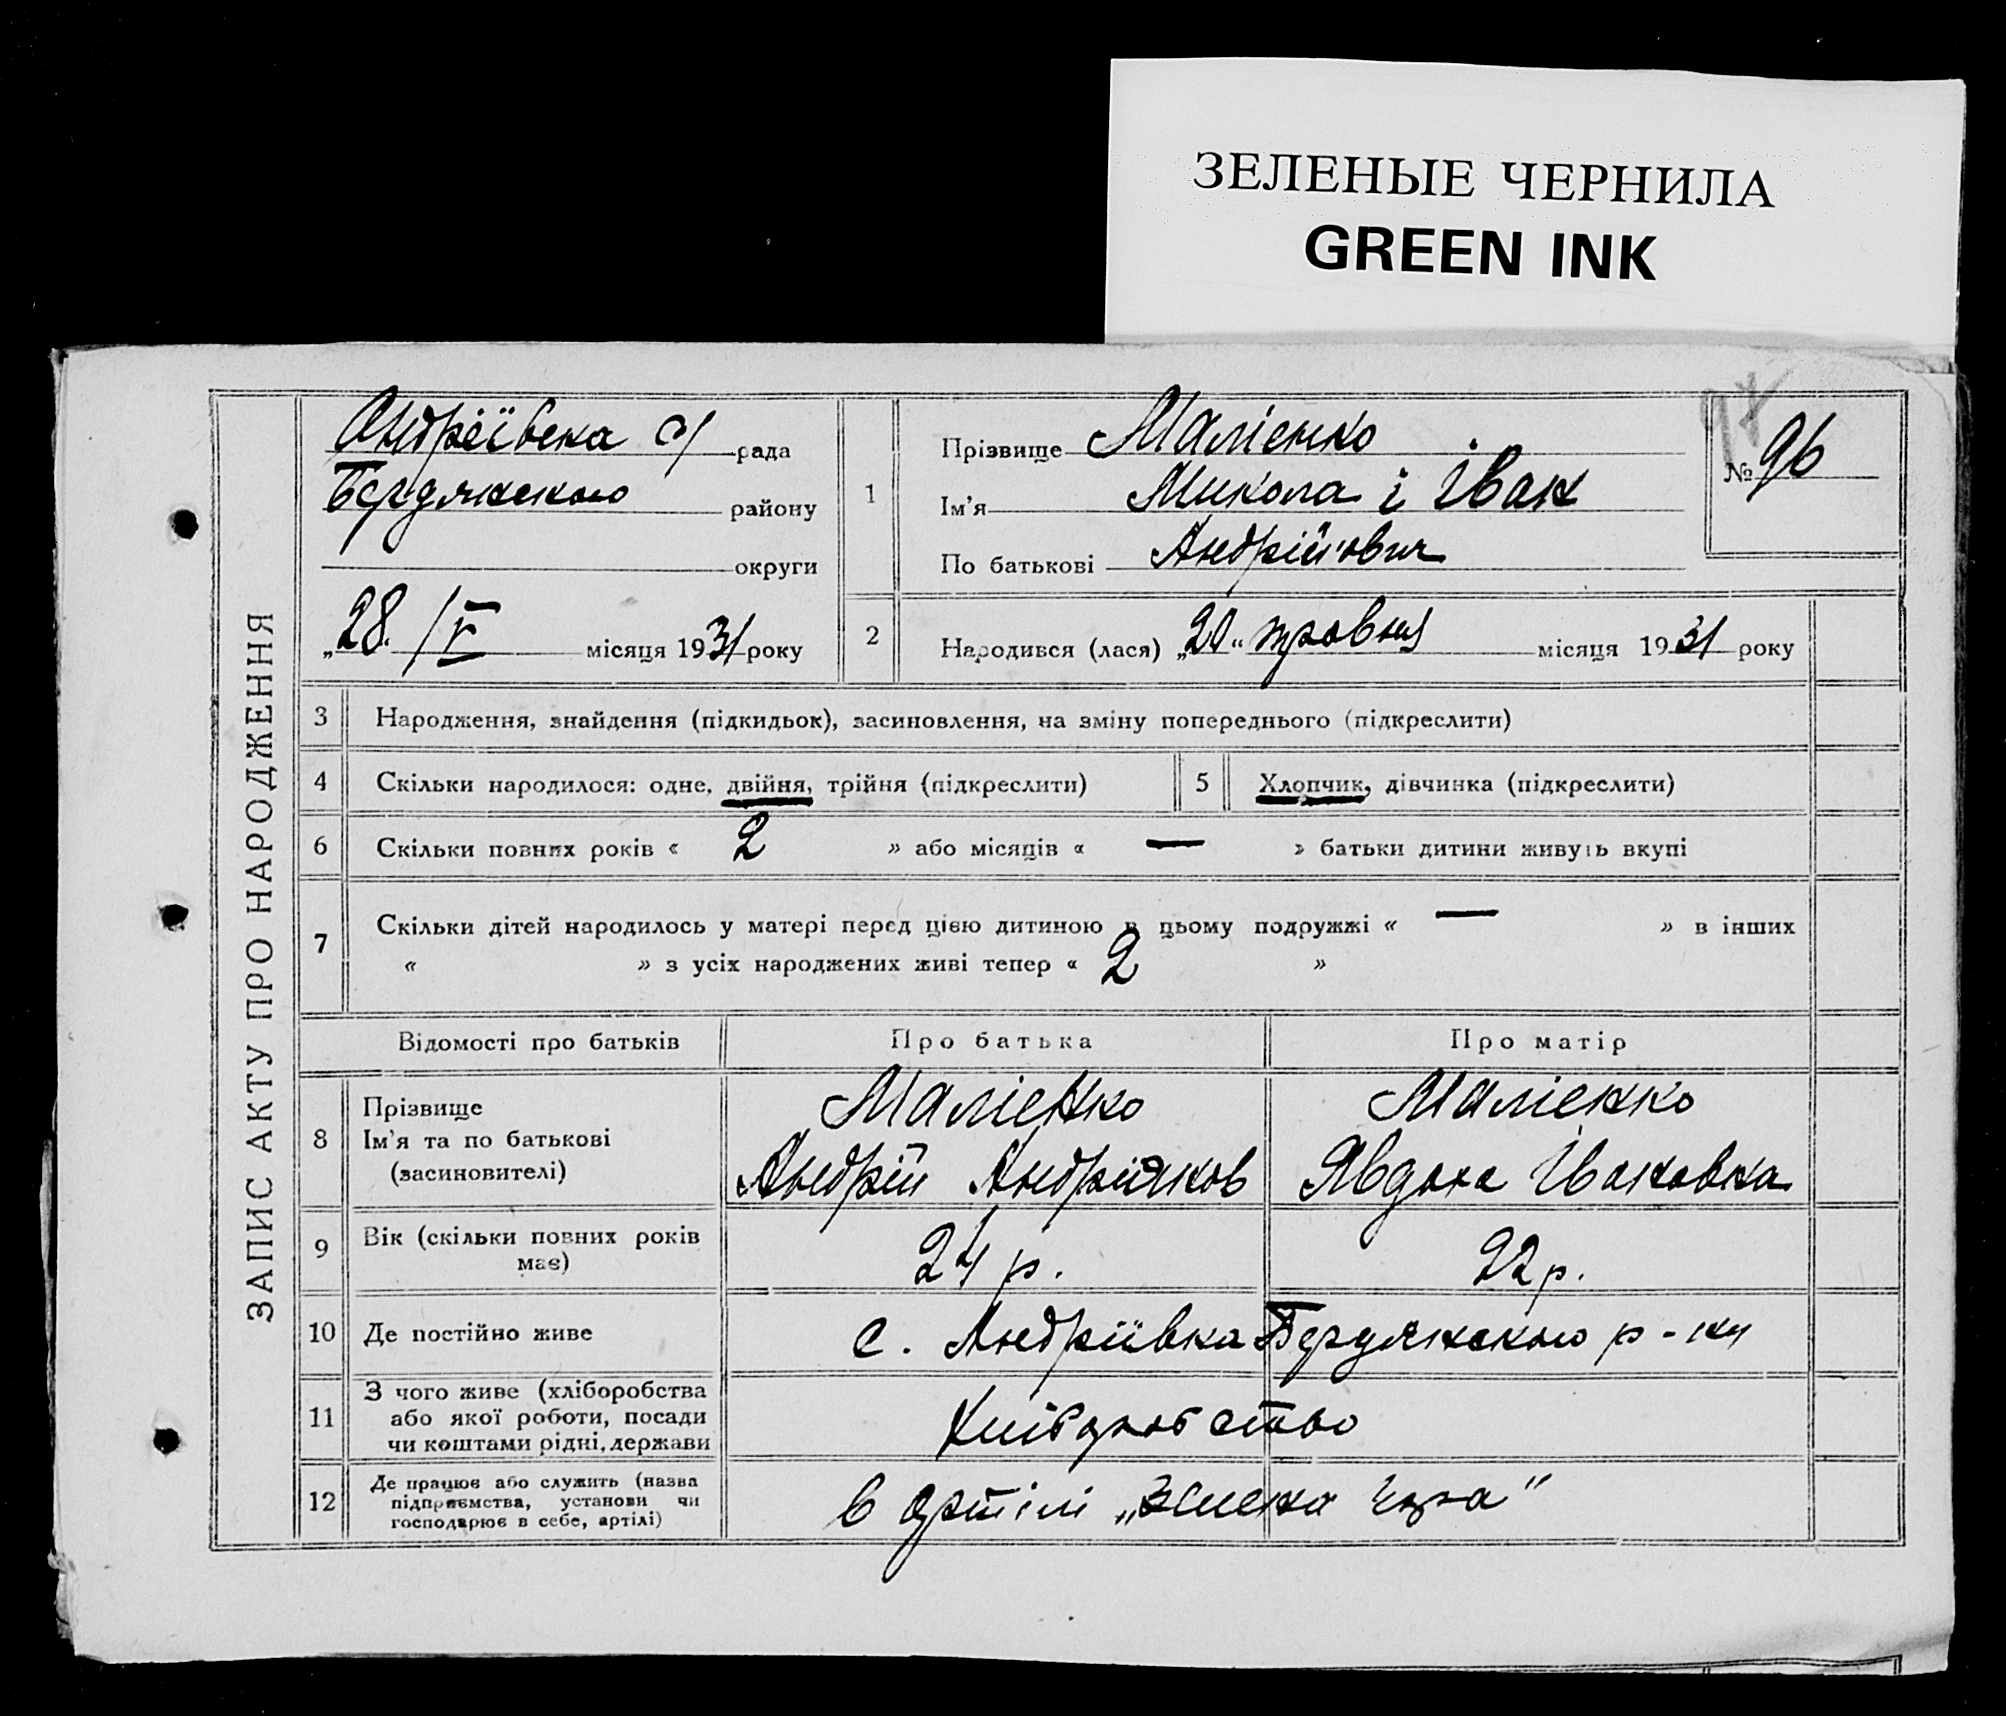 ЗЕЛЕНЫЕ ЧЕРНИЛА
GREEN INK
ЗАПИС АКТУ ПРО НАРОДЖЕННЯ
97
Андріївська с/рада
Бердянського району
округи
„28.“ /V місяця 1931 року
1 Прізвище Малієнко
Ім'я Микола і Іван
По батькові Андрійович
№ 96
2 Народився (лася) „20“ травня місяця 1931 року
3 Народження, знайдення (підкидьок), засиновлення, на зміну попереднього (підкреслити)
4 Скільки народилося: одне, двійня, трійня (підкреслити)
5 Хлопчик, дівчинка (підкреслити)
6 Скільки повних років « 2 » або місяців « — » батьки дитини живуть вкупі
7 Скільки дітей народилось у матері перед цією дитиною в цьому подружжі « — » в інших
« » з усіх народжених живі тепер « 2 »
Відомості про батьків Про батька Про матір
8 Прізвище Малієнко Малієнко
Ім'я та по батькові Андрій Андріяков Явдоха Івановна
(засиновителі)
9 Вік (скільки повних років має) 24 р. 22 р.
10 Де постійно живе с. Андріївка Бердянського р-ну
11 З чого живе (хліборобства
або якої роботи, посади
чи коштами рідні, держави
Хліборобство
12 Де працює або служить (назва
підприємства, установи чи
господарює в себе, артілі)
в артілі